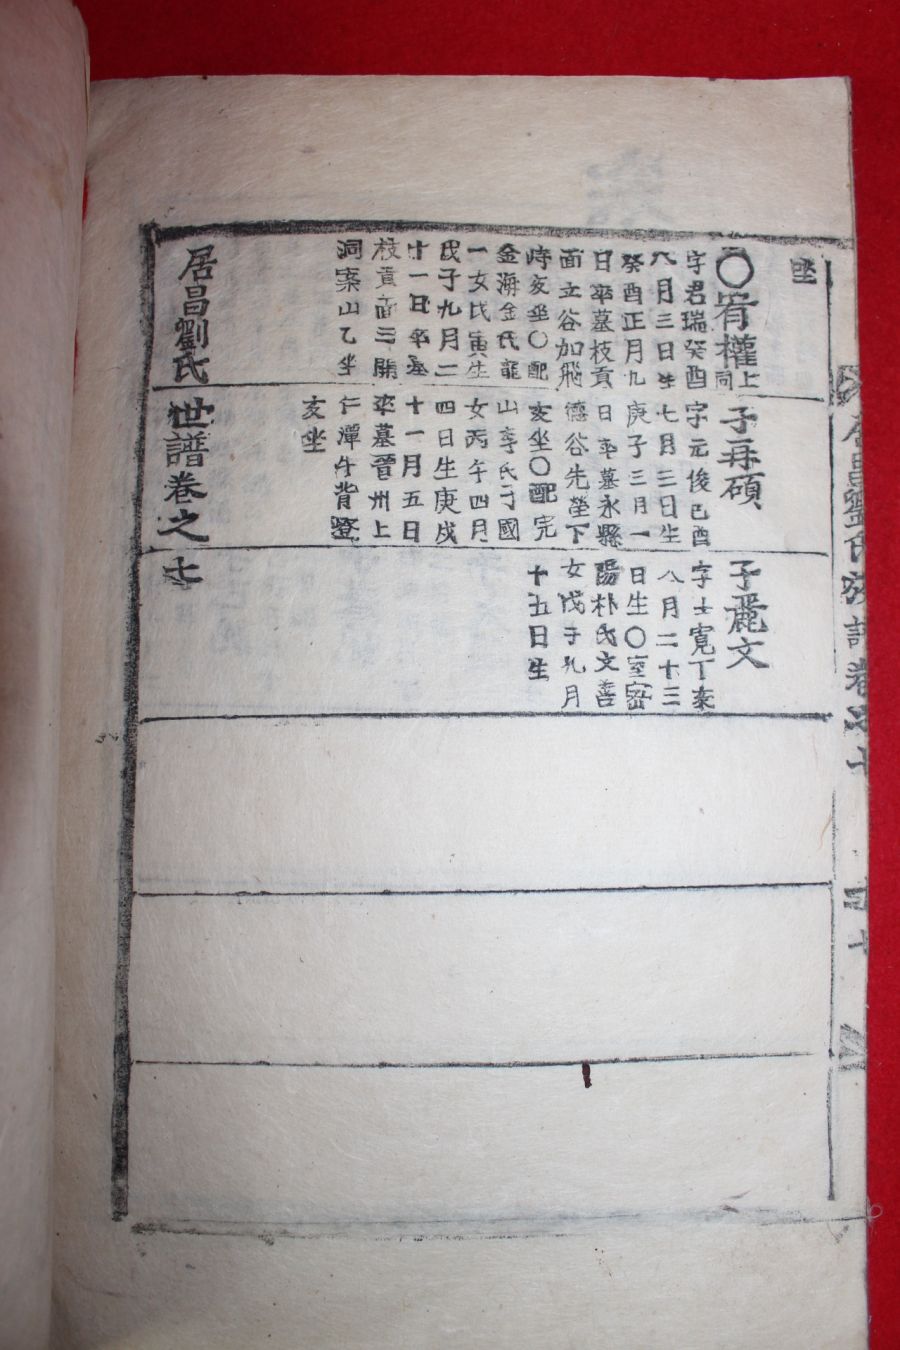 坐
○宥權同上
字君瑞癸酉
八月三日生
癸酉正月九
日卒墓枝貢
面立谷加飛
峙亥坐○配
金海金氏龍
一女氏寅生
戊子九月二
十一日卒墓
枝貢面三開
洞案山乙坐
子再碩
字元俊己酉
七月三日生
庚子三月一
日卒墓永縣
德谷先塋下
亥坐○配完
山李氏于國
女丙午四月
四日生庚戌
十一月五日
卒墓晉州上
仁潭牛背嶝
亥坐
子麗文
字士寬丁亥
八月二十三
日生○室密
陽朴氏文善
女戊子九月
十五日生
居昌劉氏世譜卷之七
居昌劉氏族譜卷之七